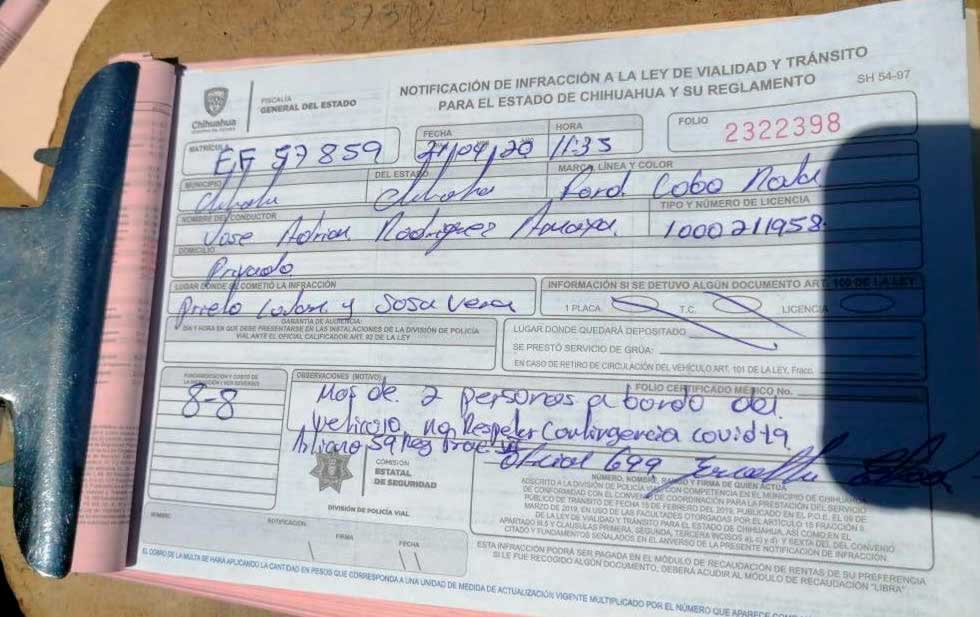 NOTIFICACIÓN DE INFRACCIÓN A LA LEY DE VIALIDAD Y TRÁNSITO
PARA EL ESTADO DE CHIHUAHUA Y SU REGLAMENTO
SH 54-97
Chihuahua
FISCALÍA
GENERAL DEL ESTADO
FOLIO
2322398
MATRÍCULA
EF 57859
FECHA
21/04/20
HORA
11:35
MUNICIPIO
DEL ESTADO
MARCA, LÍNEA Y COLOR
Ford Lobo
NOMBRE DEL CONDUCTOR
Jose Adrian Rodriguez Amaya
TIPO Y NÚMERO DE LICENCIA
1000211958
DOMICILIO
Privado
LUGAR DONDE SE COMETIÓ LA INFRACCIÓN
y Sosa Vera
INFORMACIÓN SI SE DETUVO ALGÚN DOCUMENTO ART. 100 DE LA LEY
1 PLACA
T.C.
LICENCIA
GARANTÍA DE AUDIENCIA:
DÍA Y HORA EN QUE DEBE PRESENTARSE EN LAS INSTALACIONES DE LA DIVISIÓN DE POLICÍA
VIAL ANTE EL OFICIAL CALIFICADOR ART. 92 DE LA LEY
LUGAR DONDE QUEDARÁ DEPOSITADO
SE PRESTÓ SERVICIO DE GRÚA:
EN CASO DE RETIRO DE CIRCULACIÓN DEL VEHÍCULO ART. 101 DE LA LEY, Fracc.
FUNDAMENTACIÓN Y COSTO DE
8-8
OBSERVACIONES (MOTIVO)
FOLIO CERTIFICADO MÉDICO No.
Mas de 2 personas abordo del
vehiculo no Respetar Contingencia covid19
59 Reg
Oficial 699
COMISIÓN
ESTATAL
DE SEGURIDAD
DIVISIÓN DE POLICÍA VIAL
NÚMERO, NOMBRE, RANGO Y FIRMA DE QUIEN ACTÚA
ADSCRITO A LA DIVISIÓN DE POLICÍA VIAL CON COMPETENCIA EN EL MUNICIPIO DE CHIHUAHUA
DE CONFORMIDAD CON EL CONVENIO DE COORDINACIÓN PARA LA PRESTACIÓN DEL SERVICIO
PÚBLICO DE TRÁNSITO DE FECHA 15 DE FEBRERO DEL 2019, PUBLICADO EN EL P.O.E. EL 09 DE
MARZO DE 2019, EN USO DE LAS FACULTADES OTORGADAS POR EL ARTÍCULO 15 FRACCIÓN II
DE LA LEY DE VIALIDAD Y TRÁNSITO PARA EL ESTADO DE CHIHUAHUA, ASÍ COMO EN EL
APARTADO III.5 Y CLAUSULAS PRIMERA, SEGUNDA, TERCERA INCISOS a), c) y d) Y SEXTA DEL DEL CONVENIO
CITADO Y FUNDAMENTOS SEÑALADOS EN EL ANVERSO DE LA PRESENTE NOTIFICACIÓN DE INFRACCIÓN.
NOMBRE
NOTIFICACIÓN
FIRMA
FECHA
ESTA INFRACCIÓN PODRÁ SER PAGADA EN EL MÓDULO DE RECAUDACIÓN DE RENTAS DE SU PREFERENCIA
SI LE FUE RECOGIDO ALGÚN DOCUMENTO, DEBERÁ ACUDIR AL MÓDULO DE RECAUDACIÓN "LIBRA"
EL COBRO DE LA MULTA SE HARÁ APLICANDO LA CANTIDAD EN PESOS QUE CORRESPONDA A UNA UNIDAD DE MEDIDA DE ACTUALIZACIÓN VIGENTE MULTIPLICADO POR EL NÚMERO QUE APARECE